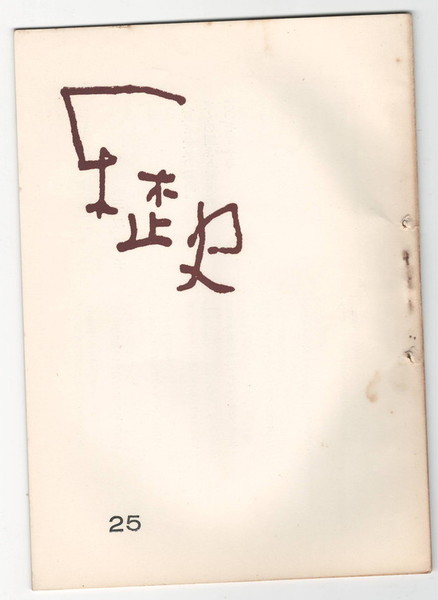 歴史
25